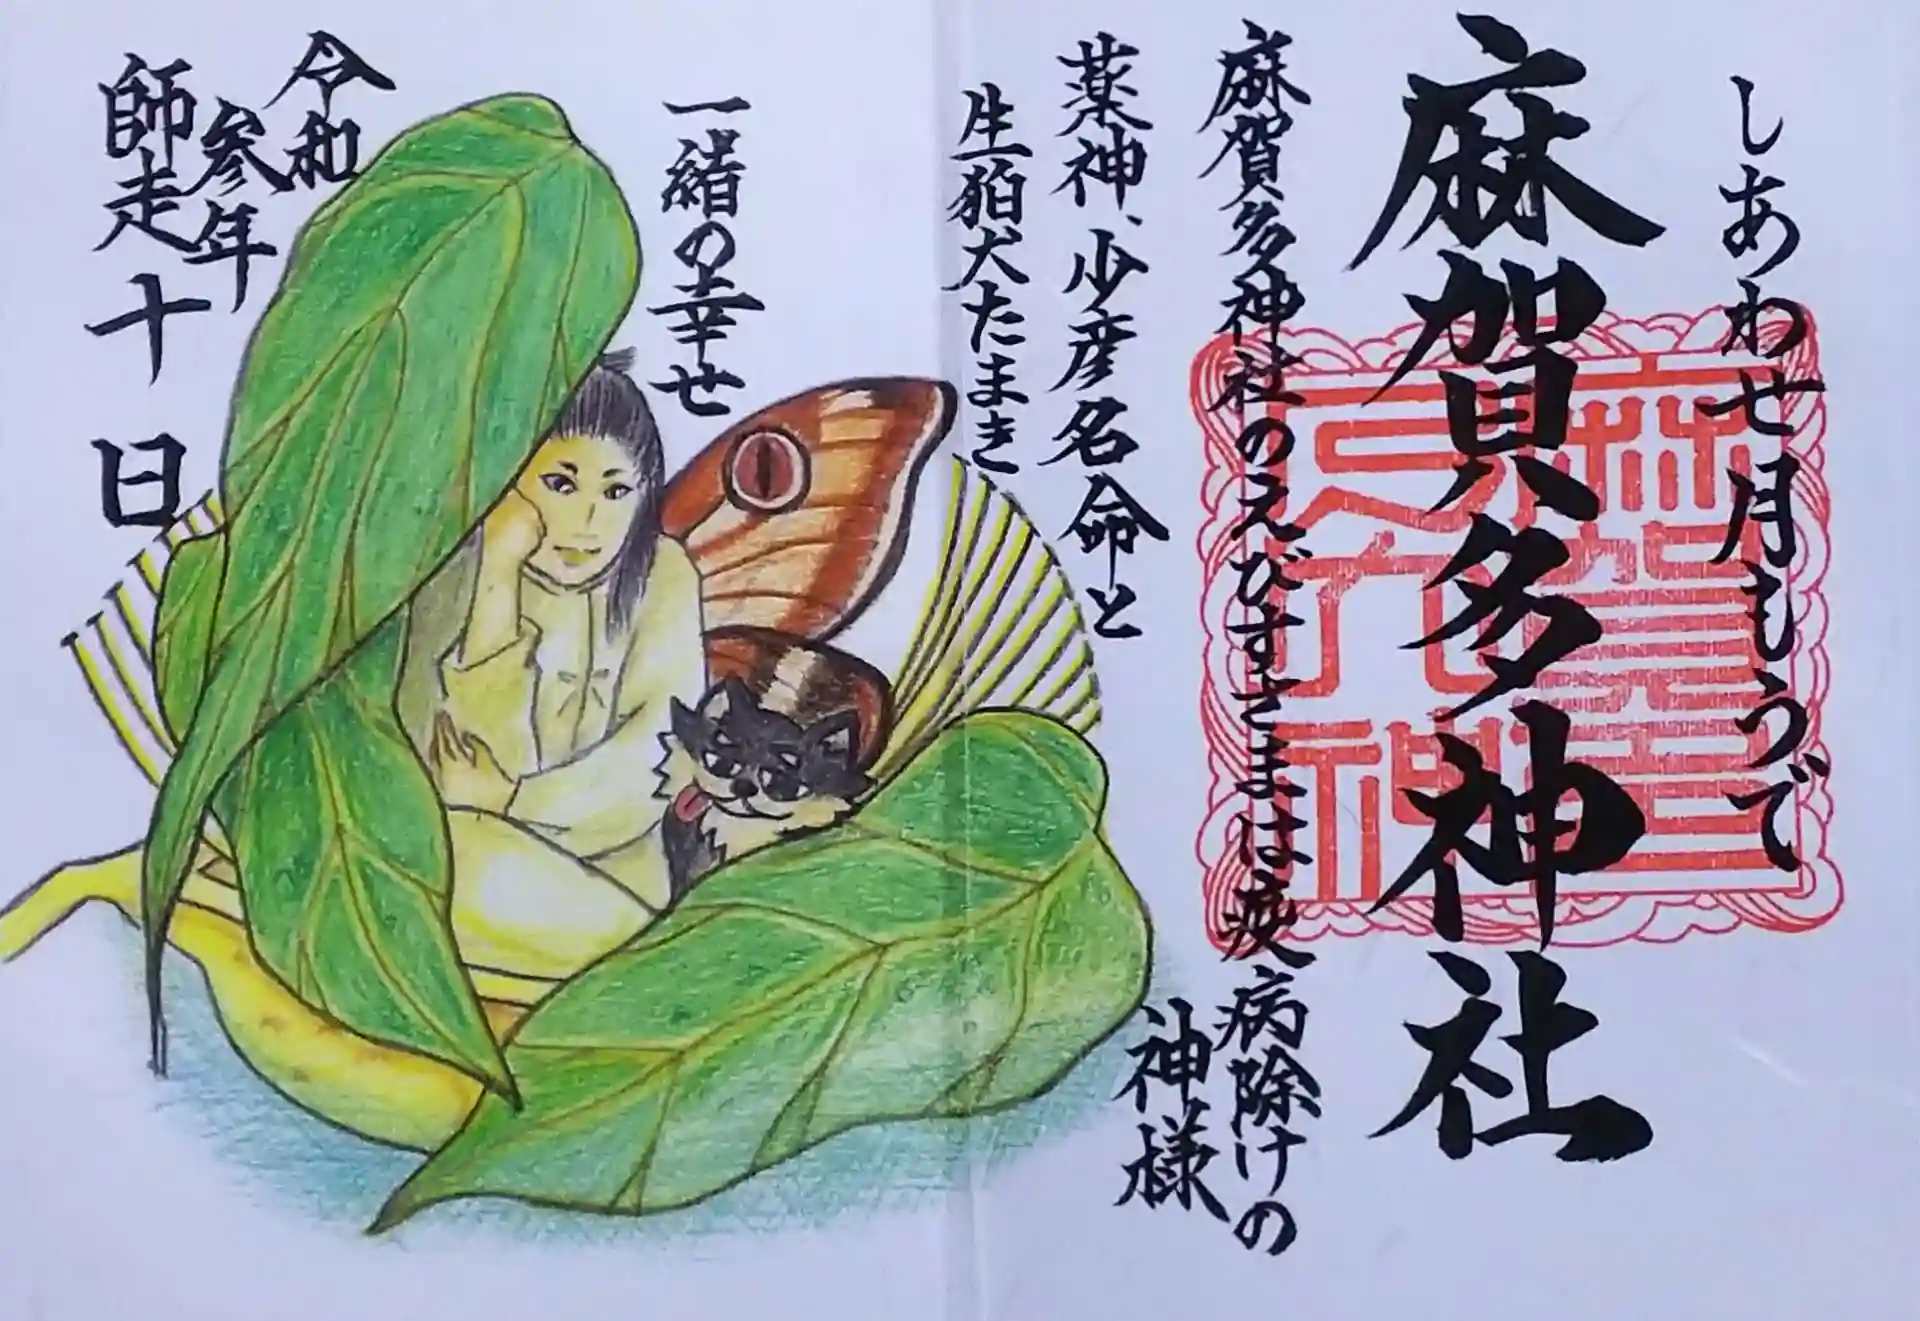 しあわせ月もうで
麻賀多神社
麻賀多神社のえびすさまは疫病除けの
神様
薬神、少彦名命と
生狛犬たまき
一緒の幸せ
令和
参年
師走十日